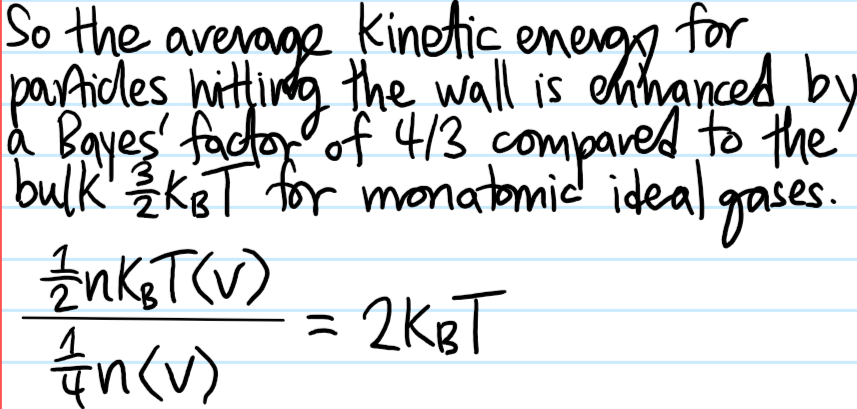 So the average kinetic energy for
particles hitting the wall is enhanced by
a Bayes' factor of 4/3 compared to the
bulk 3/2 KBT for monatomic ideal gases.
1/2 nKBT⟨v⟩
1/4 n⟨v⟩
= 2KBT